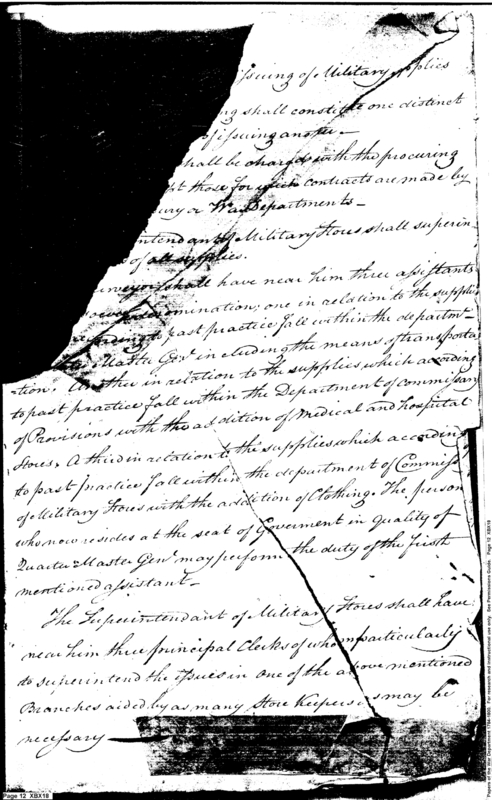 issuing of Military
ng shall constitute one distinct
of issuing another —
shall be charged with the procuring
those for which contracts are made by
or War Departments —
intendant of Military Stores shall superin
of all supplies.
urveyor shall have near him three assistants
denomination; one in relation to the supplies
according to past practice fall within the depart-
Master Genl including the means of transporta
tion. Another in relation to the supplies which according
to past practice fall within the Department of commissary
of Provisions with the addition of Medical and hospital
Stores. A third in relation to the supplies which according
to past practice fall within the department of Commiss
of Military Stores with the addition of Clothing. The person
who now resides at the seat of Goverment in quality of
Quarter Master Genl may perform the duty of the first
mentioned assistant —
The Superintendant of Military Stores shall have
near him three principal Clerks of whom particularly
to superintend the issues in one of the above mentioned
Branches aided by as many Store Keepers as may be
necessary —
Page 12 XBX18